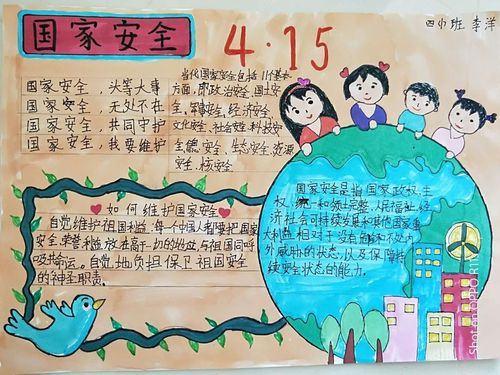 国家安全
4·15
四中班 李洋
国家安全，头等大事
国家安全，无处不在
国家安全，共同守护
国家安全，我要维护
当代国家安全包括11个基本
方面，即政治安全、国土安
全、军事安全、经济安全
文化安全、社会安全、科技安
全信息安全、生态安全、资源
安全、核安全
如何维护国家安全
自觉维护祖国利益，每一个中国人都要把国家
安全、荣誉利益放在高于一切的地位，与祖国同呼
吸共命运。自觉地负担保卫祖国安全
的神圣职责。
国家安全是指国家政权、主
权、统一和领土完整、人民福祉、经
济社会可持续发展和其他国家重
大利益相对于没有危险和不处内
外威胁的状态，以及保障持
续安全状态的能力。
Shot on OPPO R11